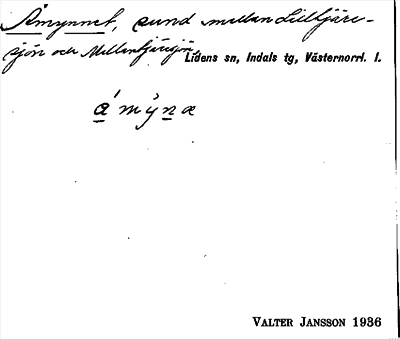 Åmynnet, sund mellan Lilltjärn-
sjön och Mellantjärnsjön,
Lidens sn, Indals tg, Västernorrl. l.
a ́ m y ̀ n æ
VALTER JANSSON 1936